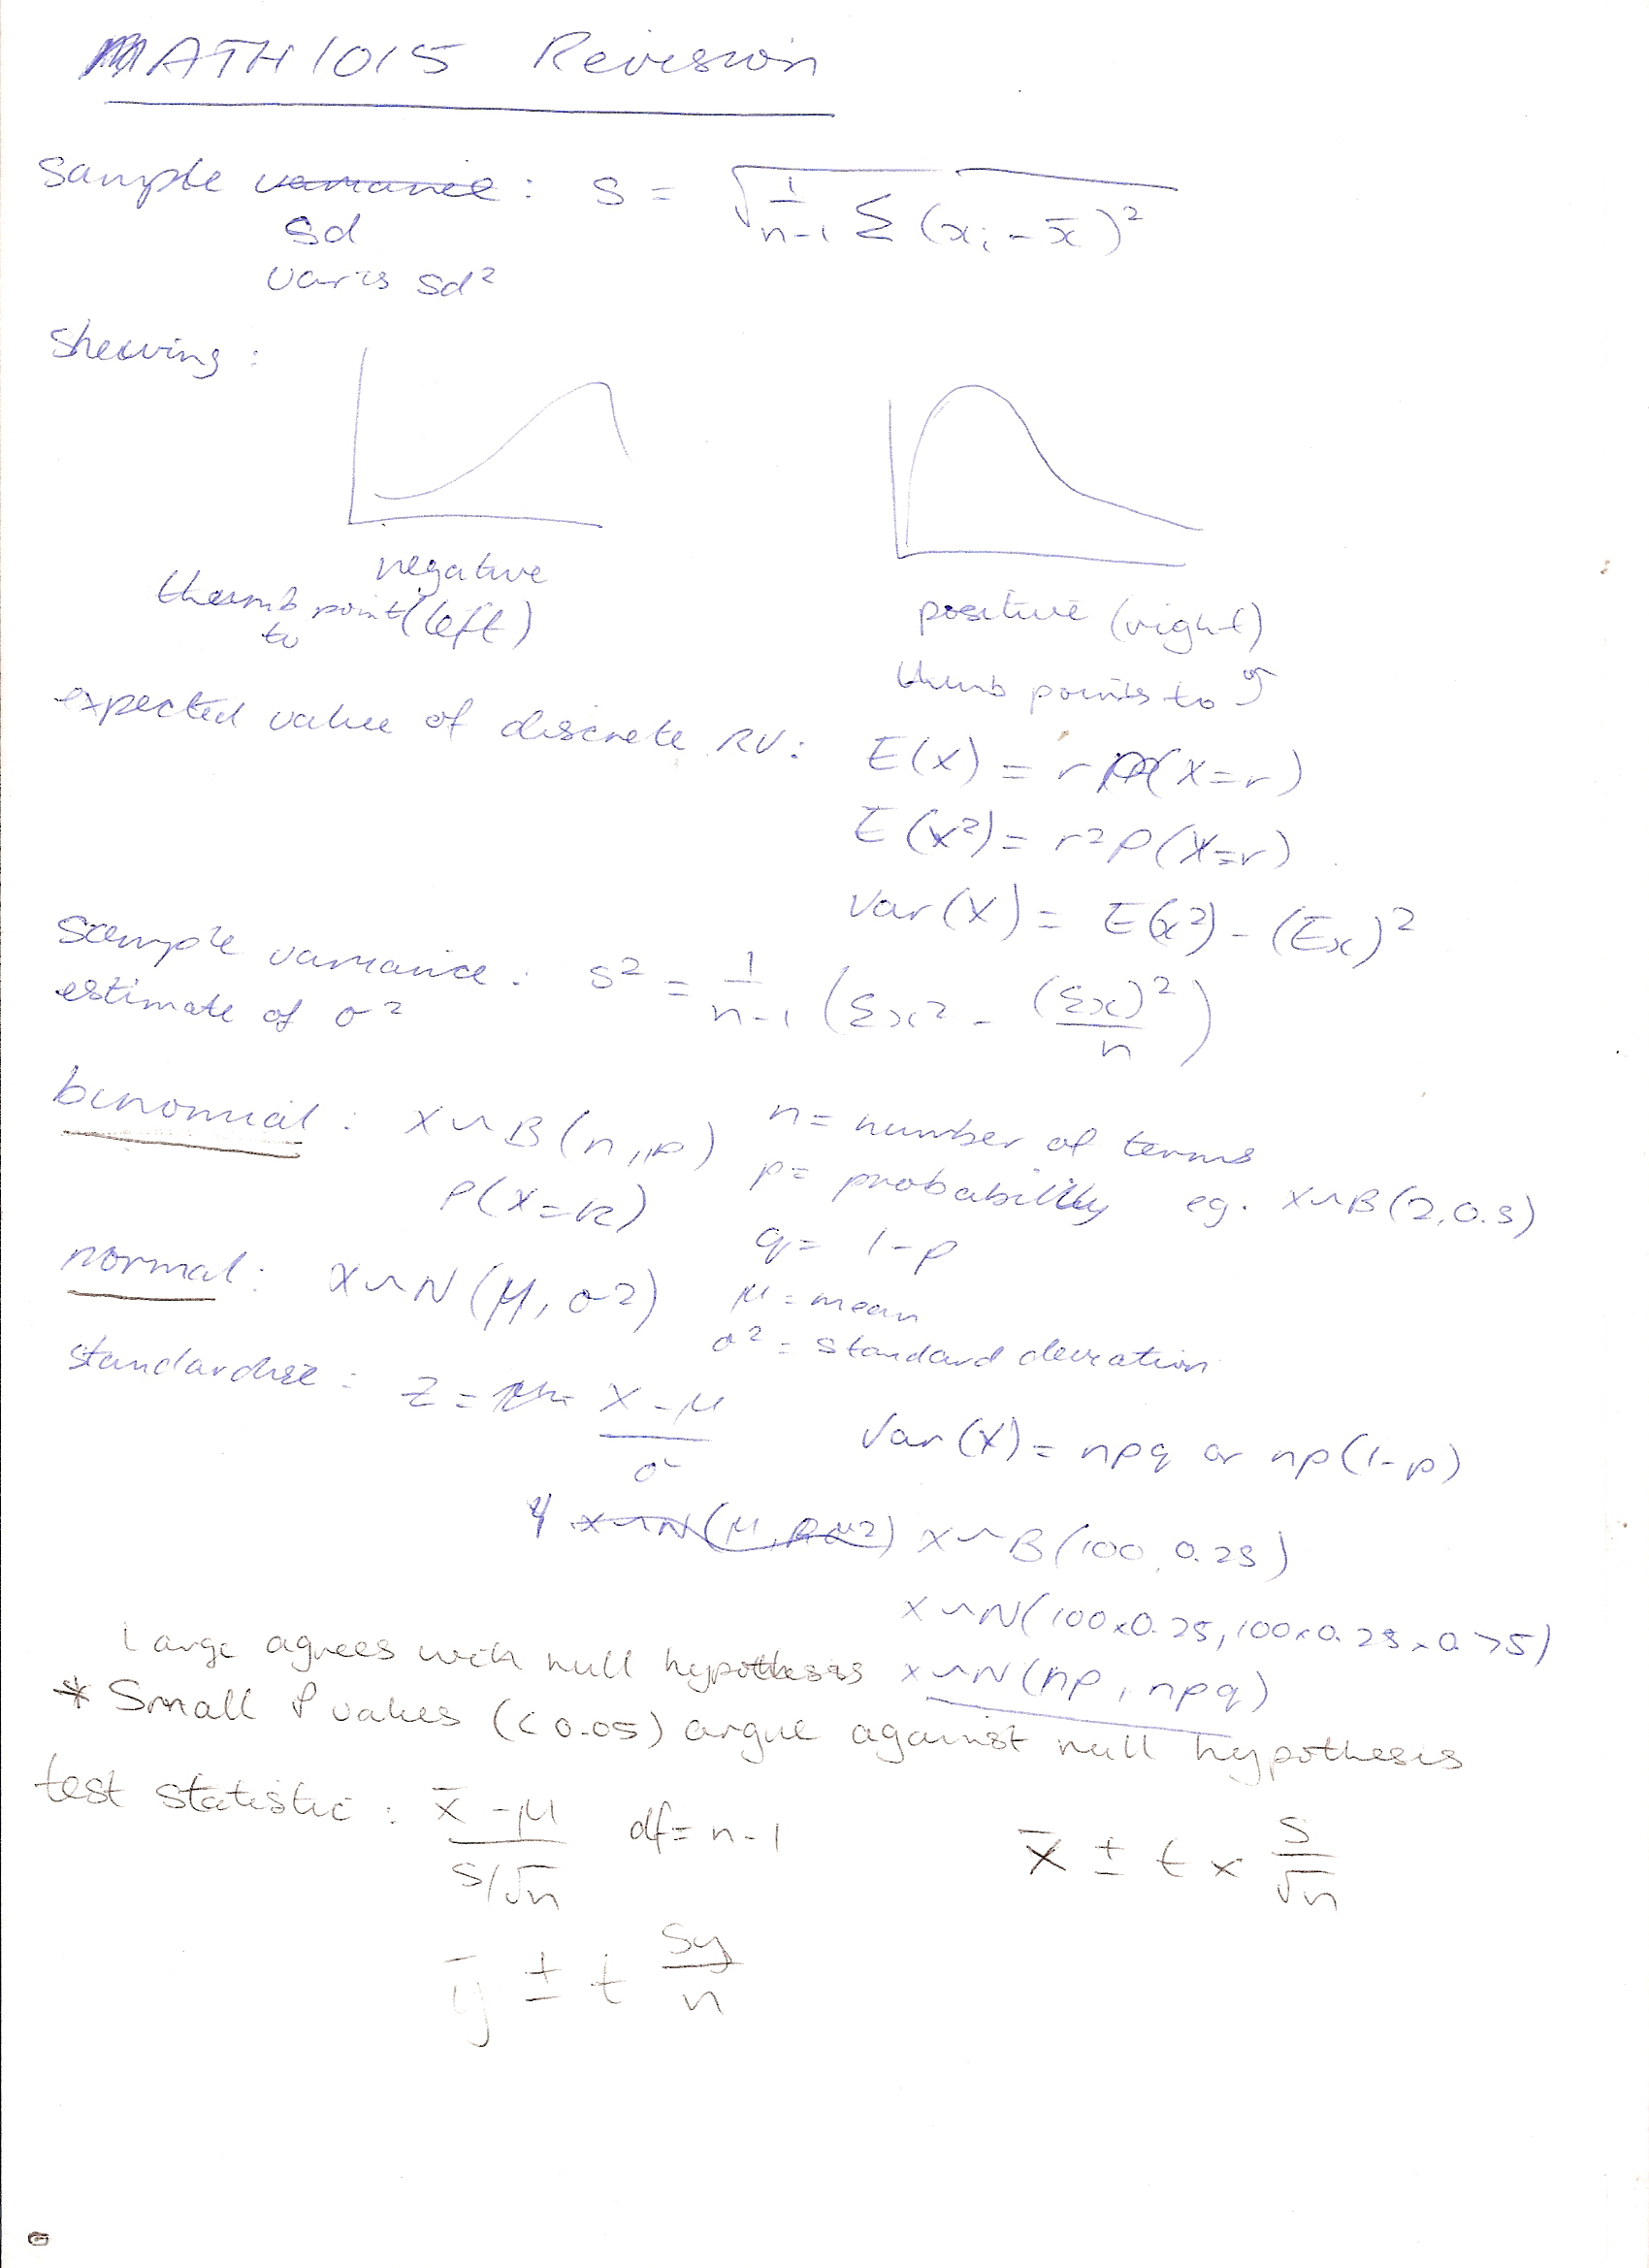 MATH1015 Revision
Sample variance : s = √ 1/n-1 Σ (xi - x̄)²
sd
var is sd²
Skewing :
negative
thumb point (left)
to
positive (right)
thumb points to
expected value of discrete RV : E(X) = r P(X=r)
E(X²) = r²P(X=r)
Var(X) = E(x²) - (Ex)²
sample variance : s² = 1/n-1 (Σx² - (Σx)²/n)
estimate of σ²
binomial : X~B(n,p) n = number of terms
P(X=k) p = probability eg. X~B(2,0.5)
q = 1-p
normal : X~N(μ, σ²) μ = mean
σ² = standard deviation
standardise : Z = X - μ / σ
Var(X) = npq or np(1-p)
if X~N(μ, σ²) X~B(100, 0.25)
X~N(100x0.25, 100x0.25x0.75)
Large agrees with null hypothesis X~N(np, npq)
* Small P values (<0.05) argue against null hypothesis
test statistic : x̄ - μ / s/√n df = n-1 x̄ ± t x s/√n
ȳ ± t sy/n